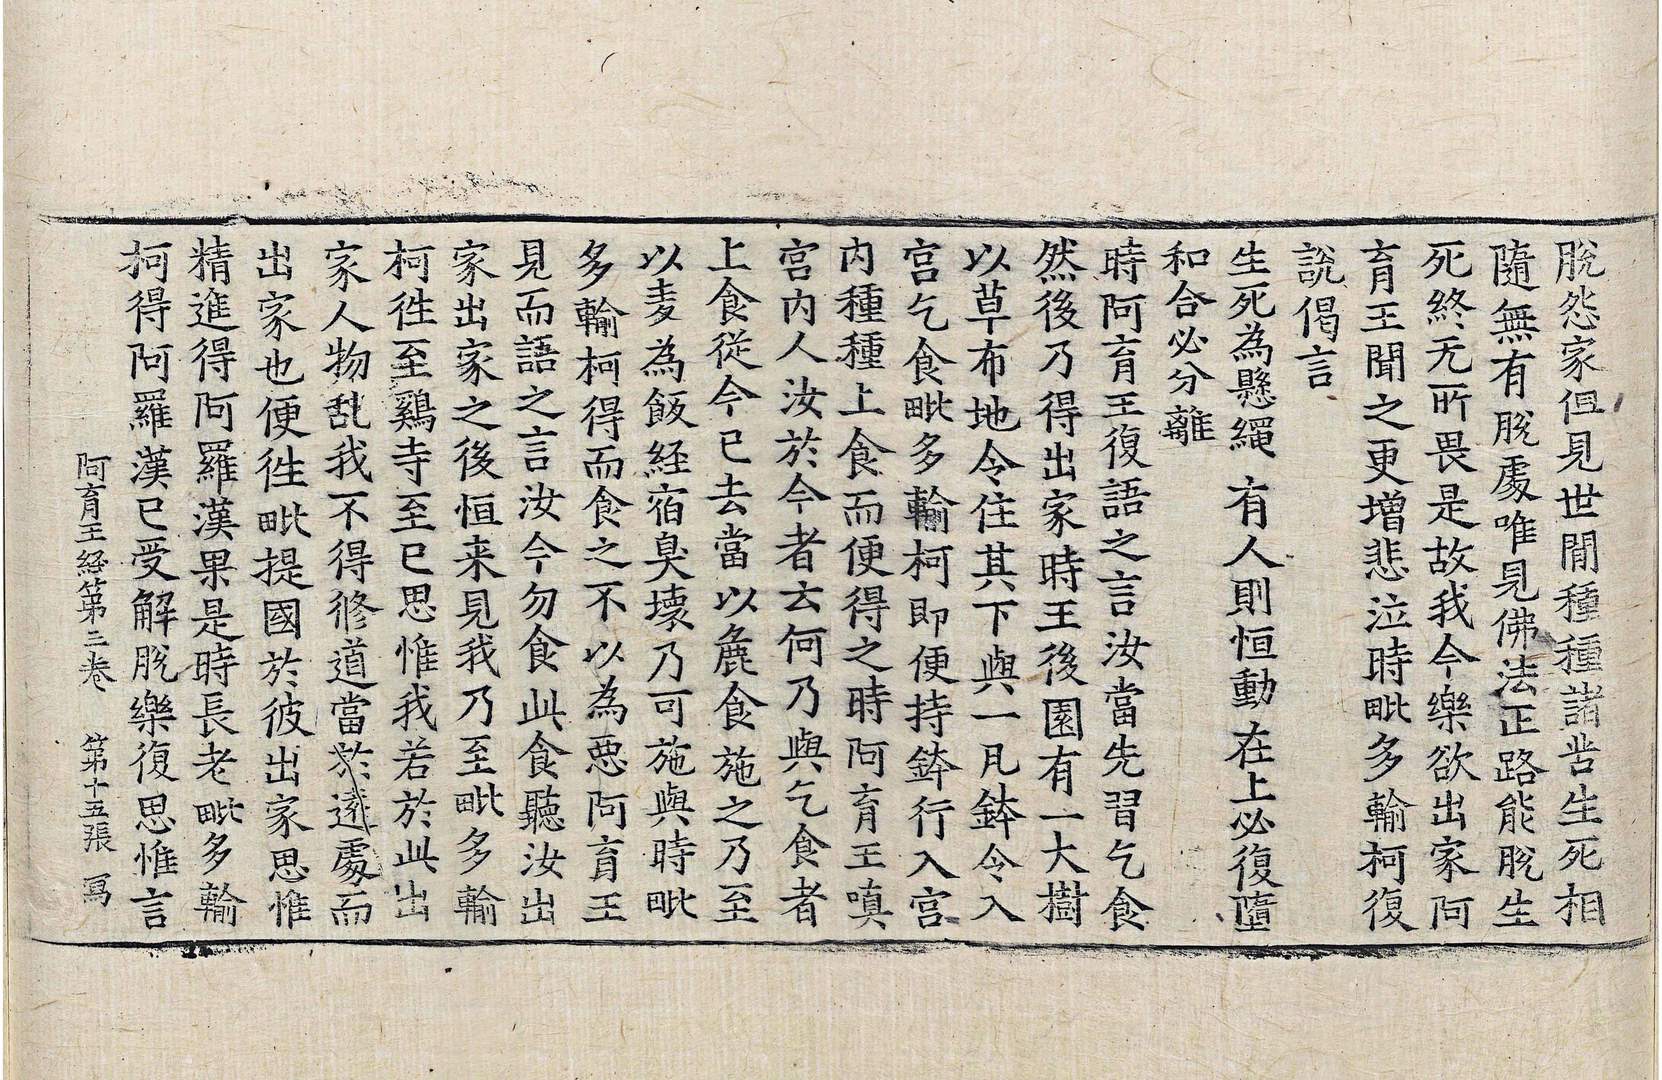 脫怨家但見世間種種諸苦生死相
隨無有脫處唯見佛法正路能脫生
死終无所畏是故我今樂欲出家阿
育王聞之更增悲泣時毗多輸柯復
說偈言
生死為懸繩 有人則恒動 在上必復墮
和合必分離
時阿育王復語之言汝當先習乞食
然後乃得出家時王後園有一大樹
以草布地令住其下與一凡鉢令入
宮乞食毗多輸柯即便持鉢行入宮
內種種上食而便得之時阿育王嗔
宮內人汝於今者云何乃與乞食者
上食從今已去當以麁食施之乃至
以麦為飯経宿臭壞乃可施與時毗
多輸柯得而食之不以為惡阿育王
見而語之言汝今勿食此食聽汝出
家出家之後恒来見我乃至毗多輸
柯徃至鷄寺至已思惟我若於此出
家人物乱我不得修道當於遠處而
出家也便徃毗提國於彼出家思惟
精進得阿羅漢果是時長老毗多輸
柯得阿羅漢已受解脫樂復思惟言
阿育王経第三卷 第十五張 寫